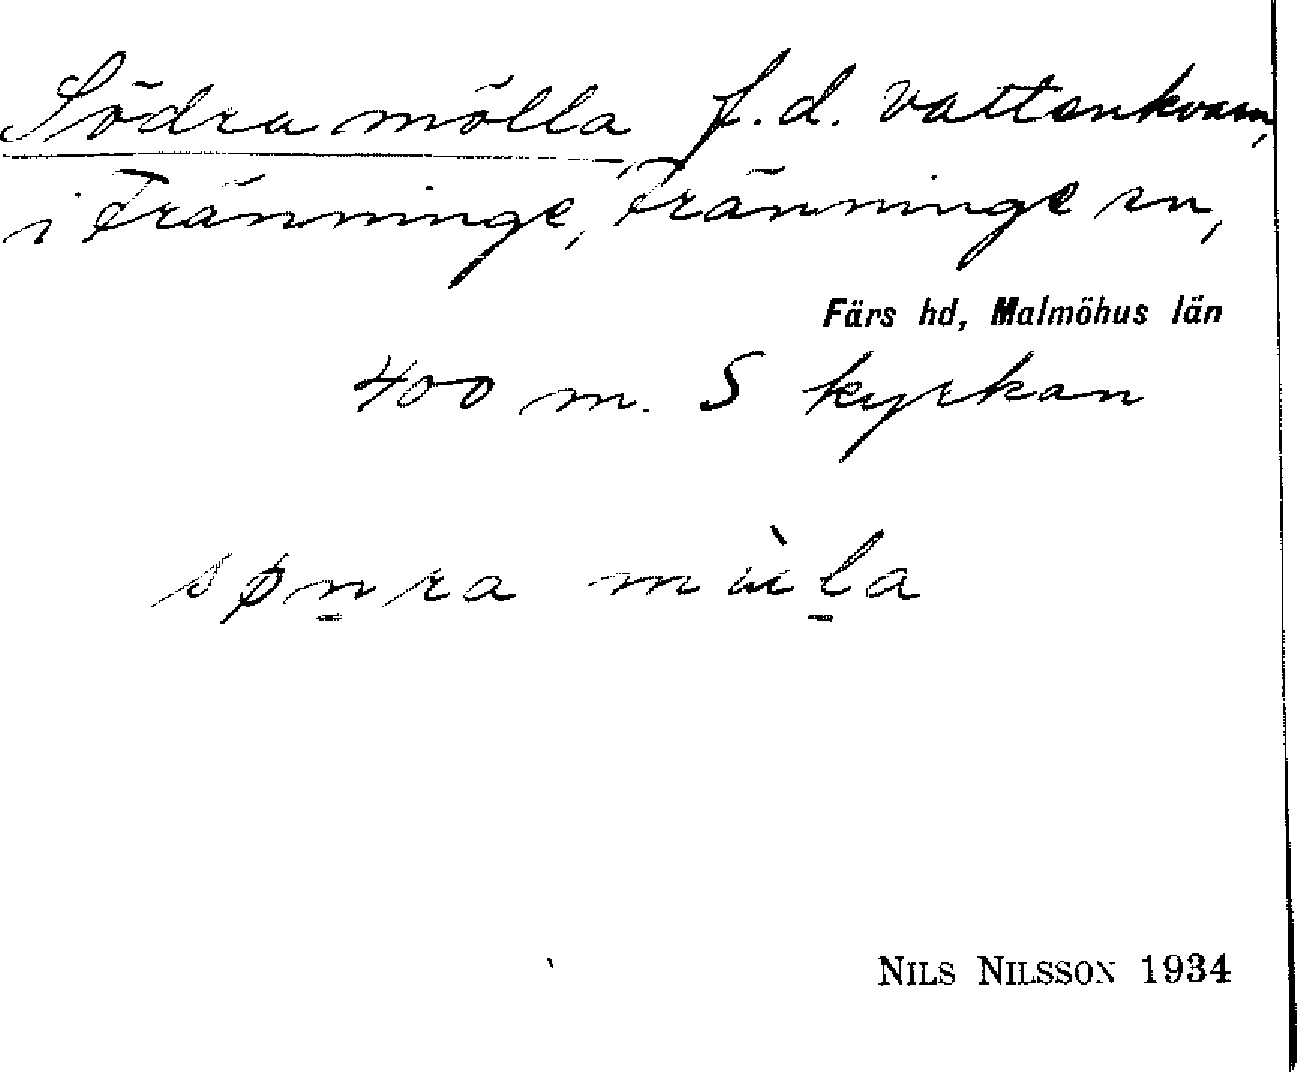 Södra mölla, f.d. vattenkvarn,
i Tränninge, Fränninge sn,
Färs hd, Malmöhus län
400 m. S kyrkan
søn̠ra mùl̠a
NILS NILSSON 1934